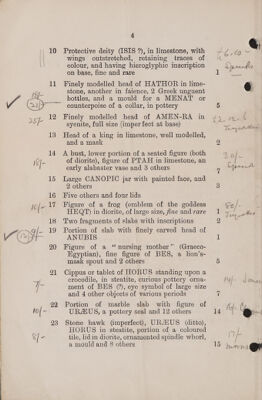 4
10 Protective deity (ISIS ?), in limestone, with
wings outstretched, retaining traces of
colour, and having hieroglyphic inscription
on base, fine and rare 1
11 Finely modelled head of HATHOR in lime-
stone, another in faience, 2 Greek unguent
bottles, and a mould for a MENAT or
counterpoise of a collar, in pottery 5
12 Finely modelled head of AMEN-RA in
syenite, full size (imperfect at base) 1
13 Head of a king in limestone, well modelled,
and a mask 2
14 A bust, lower portion of a seated figure (both
of diorite), figure of PTAH in limestone, an
early alabaster vase and 3 others 7
15 Large CANOPIC jar with painted face, and
2 others 3
16 Five others and four lids
17 Figure of a frog (emblem of the goddess
HEQT) in diorite, of large size, fine and rare 1
18 Two fragments of slabs with inscriptions 2
19 Portion of slab with finely carved head of
ANUBIS 1
20 Figure of a "nursing mother" (Graeco-
Egyptian), fine figure of BES, a lion's-
mask spout and 2 others 5
21 Cippus or tablet of HORUS standing upon a
crocodile, in steatite, curious pottery orna-
ment of BES (?), eye symbol of large size
and 4 other objects of various periods 7
22 Portion of marble slab with figure of
URÆUS, a pottery seal and 12 others 14
23 Stone hawk (imperfect), URÆUS (ditto),
HORUS in steatite, portion of a coloured
tile, lid in diorite, ornamented spindle whorl,
a mould and 8 others 15